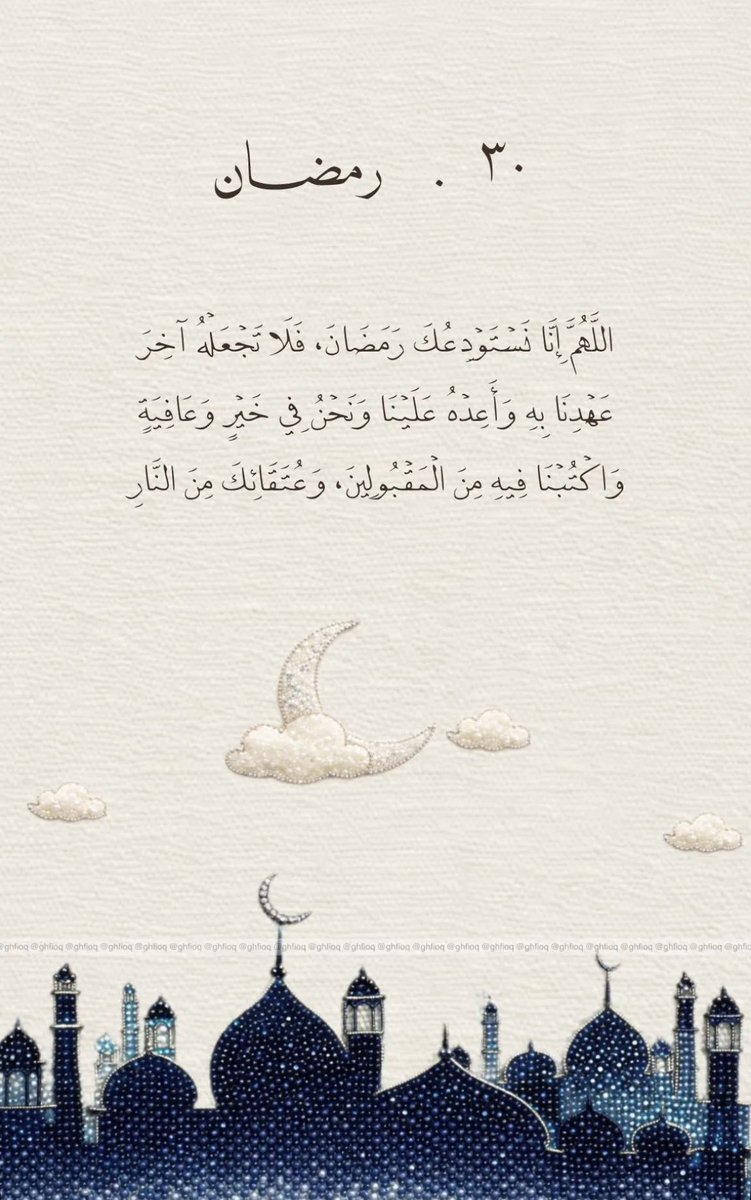 ٣٠ . رمضان
اللَّهُمَّ إِنَّا نَسْتَوْدِعُكَ رَمَضَانَ، فَلَا تَجْعَلْهُ آخِرَ
عَهْدِنَا بِهِ وَأَعِدْهُ عَلَيْنَا وَنَحْنُ فِي خَيْرٍ وَعَافِيَةٍ
وَاكْتُبْنَا فِيهِ مِنَ الْمَقْبُولِينَ، وَعُتَقَائِكَ مِنَ النَّارِ
@ghfioq @ghfioq @ghfioq @ghfioq @ghfioq @ghfioq @ghfioq @ghfioq @ghfioq @ghfioq @ghfioq @ghfioq @ghfioq @ghfioq @ghfioq @ghfioq @ghfioq @ghfioq @ghfioq @ghfioq @ghfioq